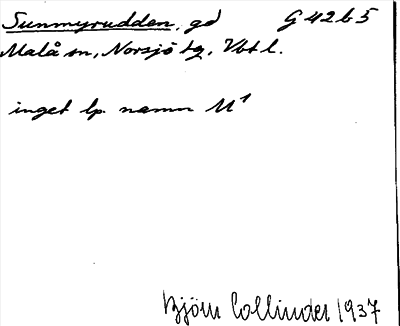 Sunmyrudden, gd G 42 b 5
Malå sn, Norsjö tg, Vbtl.
inget lp. namn M¹
Björn Collinder 1937